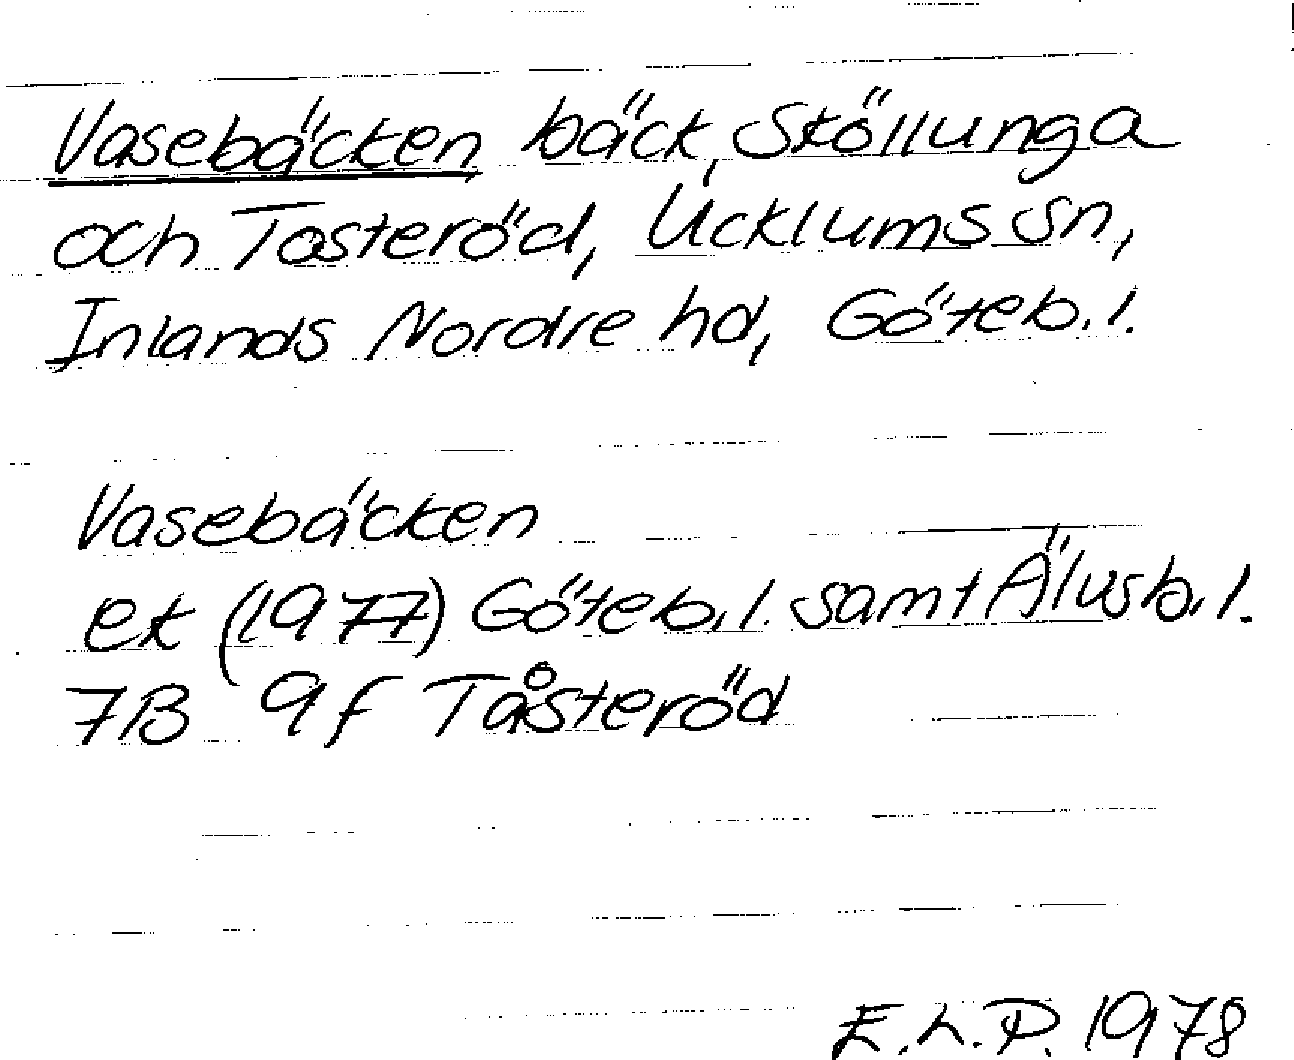 Vasebäcken bäck, Stöllunga
och Tosteröd, Ucklums sn,
Inlands Nordre hd, Göteb.l.
Vasebäcken
ek (1977) Göteb.l. samt Älvsb.l.
7B 9f Tåsteröd
E.L.P. 1978